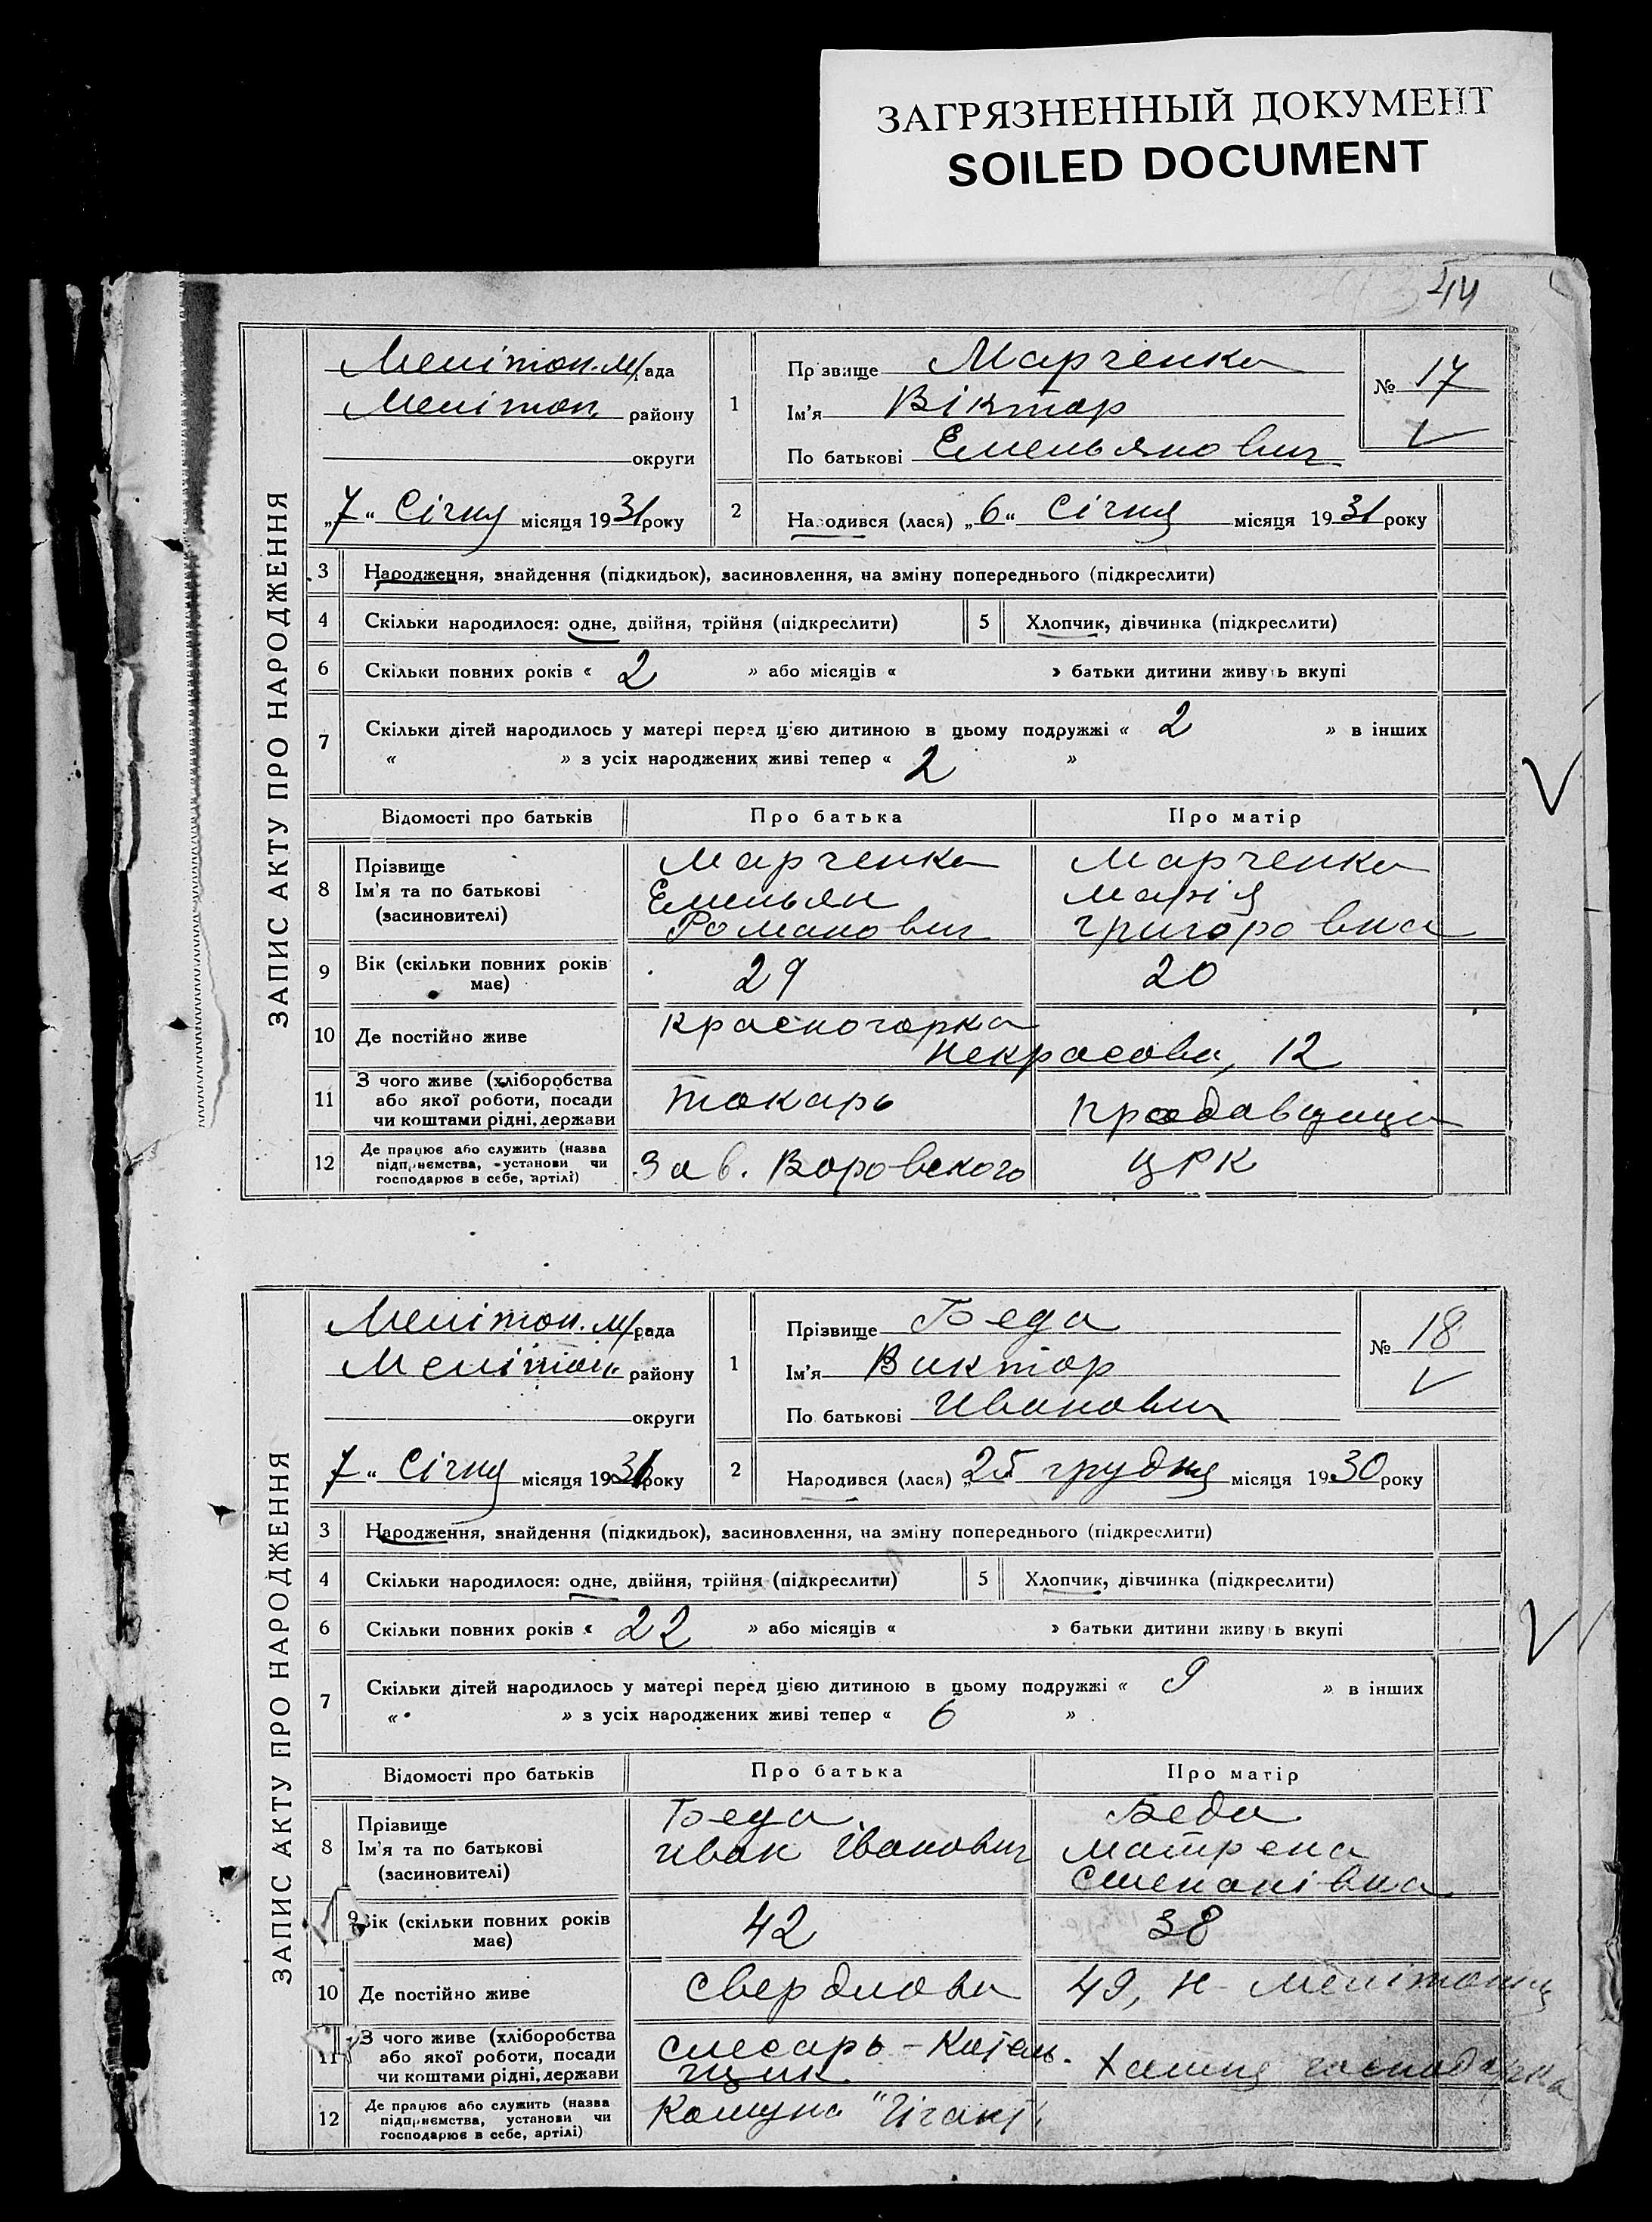 ЗАГРЯЗНЕННЫЙ ДОКУМЕНТ
SOILED DOCUMENT
44
ЗАПИС АКТУ ПРО НАРОДЖЕННЯ
Мелітоп. м/рада
Мелітоп. району
округи
„7“ Січня місяця 1931 року
1
Прізвище Марченко
Ім'я Віктор
По батькові Емельянович
№ 17
2
Народився (лася) „6“ Січня місяця 1931 року
3 Народження, знайдення (підкидьок), засиновлення, на зміну попереднього (підкреслити)
4 Скільки народилося: одне, двійня, трійня (підкреслити) 5 Хлопчик, дівчинка (підкреслити)
6 Скільки повних років « 2 » або місяців « » батьки дитини живуть вкупі
7 Скільки дітей народилось у матері перед цією дитиною в цьому подружжі « 2 » в інших
« » з усіх народжених живі тепер « 2 »
Відомості про батьків Про батька Про матір
8 Прізвище Марченко Марченко
Ім'я та по батькові Емельян Марія
(засиновителі) Романович Григоровна
9 Вік (скільки повних років має) 29 20
10 Де постійно живе Красногорка Некрасова, 12
11 З чого живе (хліборобства
або якої роботи, посади токарь продавщица
чи коштами рідні, держави
12 Де працює або служить (назва
підприємства, установи чи Зав. Воровского ЦРК
господарює в себе, артілі)
ЗАПИС АКТУ ПРО НАРОДЖЕННЯ
Мелітоп. м/рада
Мелітоп. району
округи
7“ Січня місяця 1931 року
1
Прізвище Беда
Ім'я Виктор
По батькові Иванович
№ 18
2
Народився (лася) „25 грудня місяця 1930 року
3 Народження, знайдення (підкидьок), засиновлення, на зміну попереднього (підкреслити)
4 Скільки народилося: одне, двійня, трійня (підкреслити) 5 Хлопчик, дівчинка (підкреслити)
6 Скільки повних років « 22 » або місяців « » батьки дитини живуть вкупі
7 Скільки дітей народилось у матері перед цією дитиною в цьому подружжі « 9 » в інших
« » з усіх народжених живі тепер « 6 »
Відомості про батьків Про батька Про матір
8 Прізвище Беда Беда
Ім'я та по батькові Иван Іванович Матрена
(засиновителі) Степанівна
9 Вік (скільки повних років має) 42 38
10 Де постійно живе Свердлова 49, Н-Мелітополь
11 З чого живе (хліборобства слесарь-котель-
або якої роботи, посади щик хатня господарка
чи коштами рідні, держави
12 Де працює або служить (назва
підприємства, установи чи Комуна "Гігант"
господарює в себе, артілі)